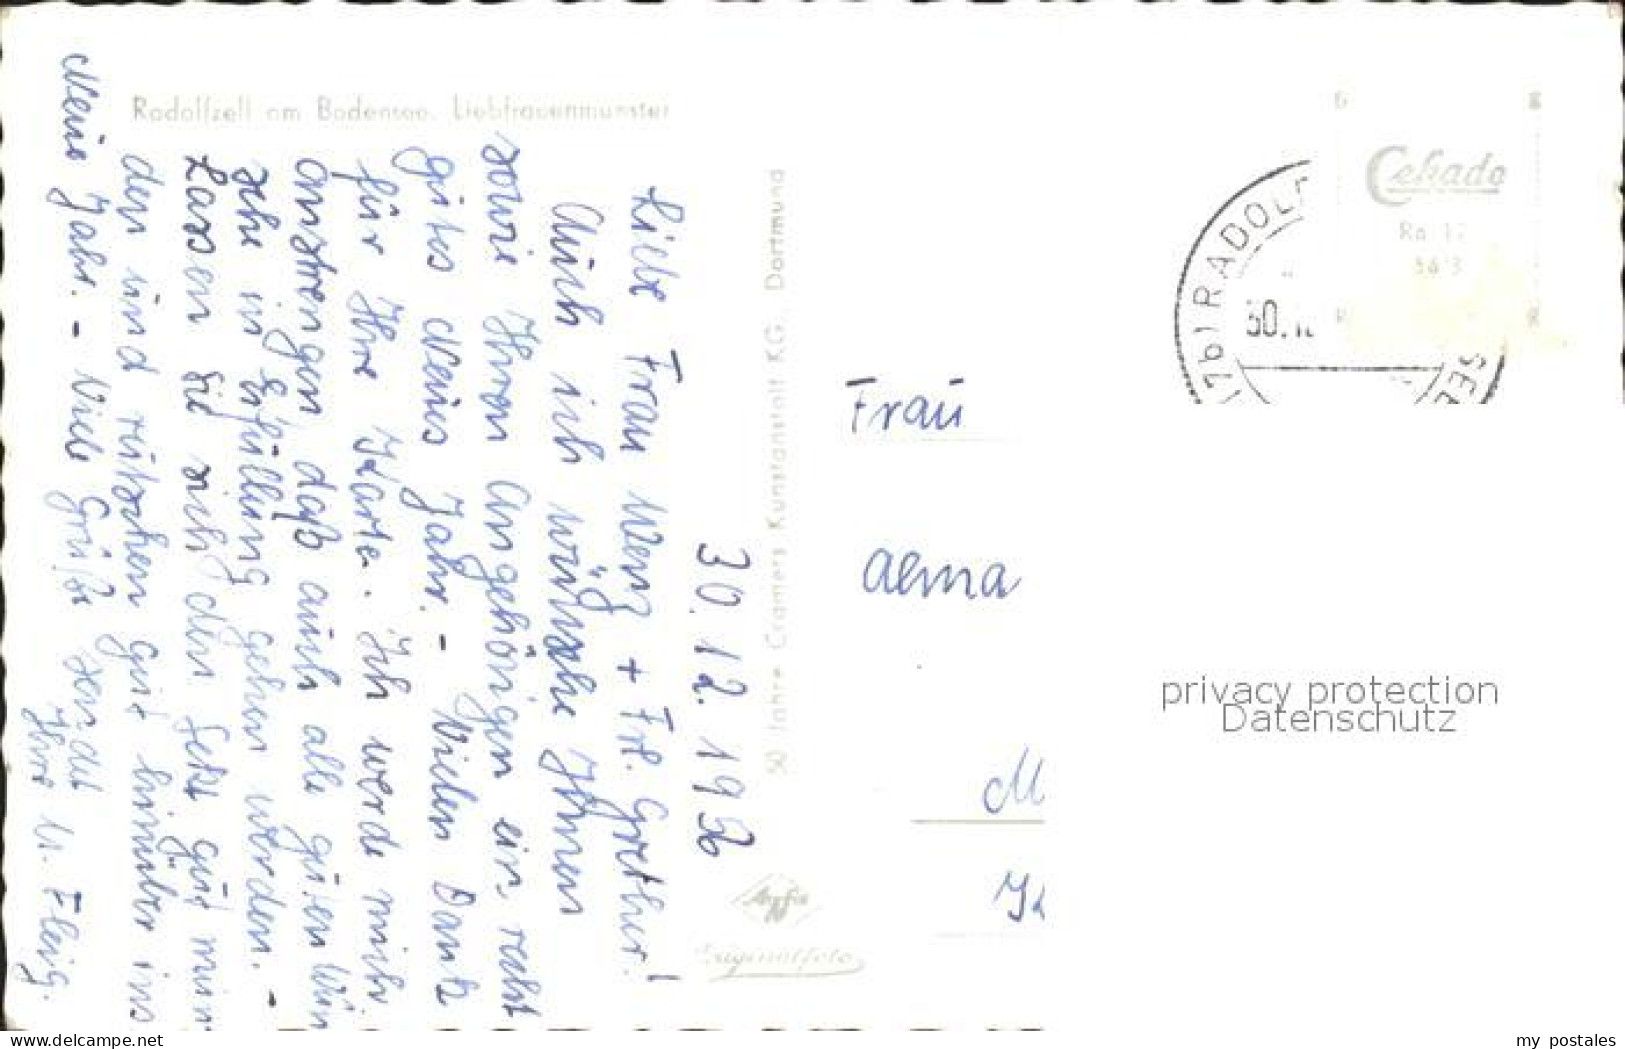 Radolfzell am Bodensee. Liebfrauenmünster
30. 12. 1956
Liebe Frau Wenz + Frl. Grether!
Auch ich wünsche Ihnen
sowie Ihren Angehörigen ein, recht
gutes Neues Jahr. - Vielen Dank
für Ihre Karte. Ich werde mich
anstrengen daß auch alle guten Wün
sche in Erfüllung gehen werden. -
Lassen Sie sich den Sekt gut mun
den und rutschen gut hinüber ins
Neue Jahr. - Viele Grüße sendet
Ihre U. Fleig.
50 Jahre Cramers Kunstanstalt KG., Dortmund
Agfa
Originalfoto
Cekade
Ra 12
(176) RADOLF
30.1
SEE
Frau
M
privacy protection
Datenschutz
www.delcampe.net
my_postales